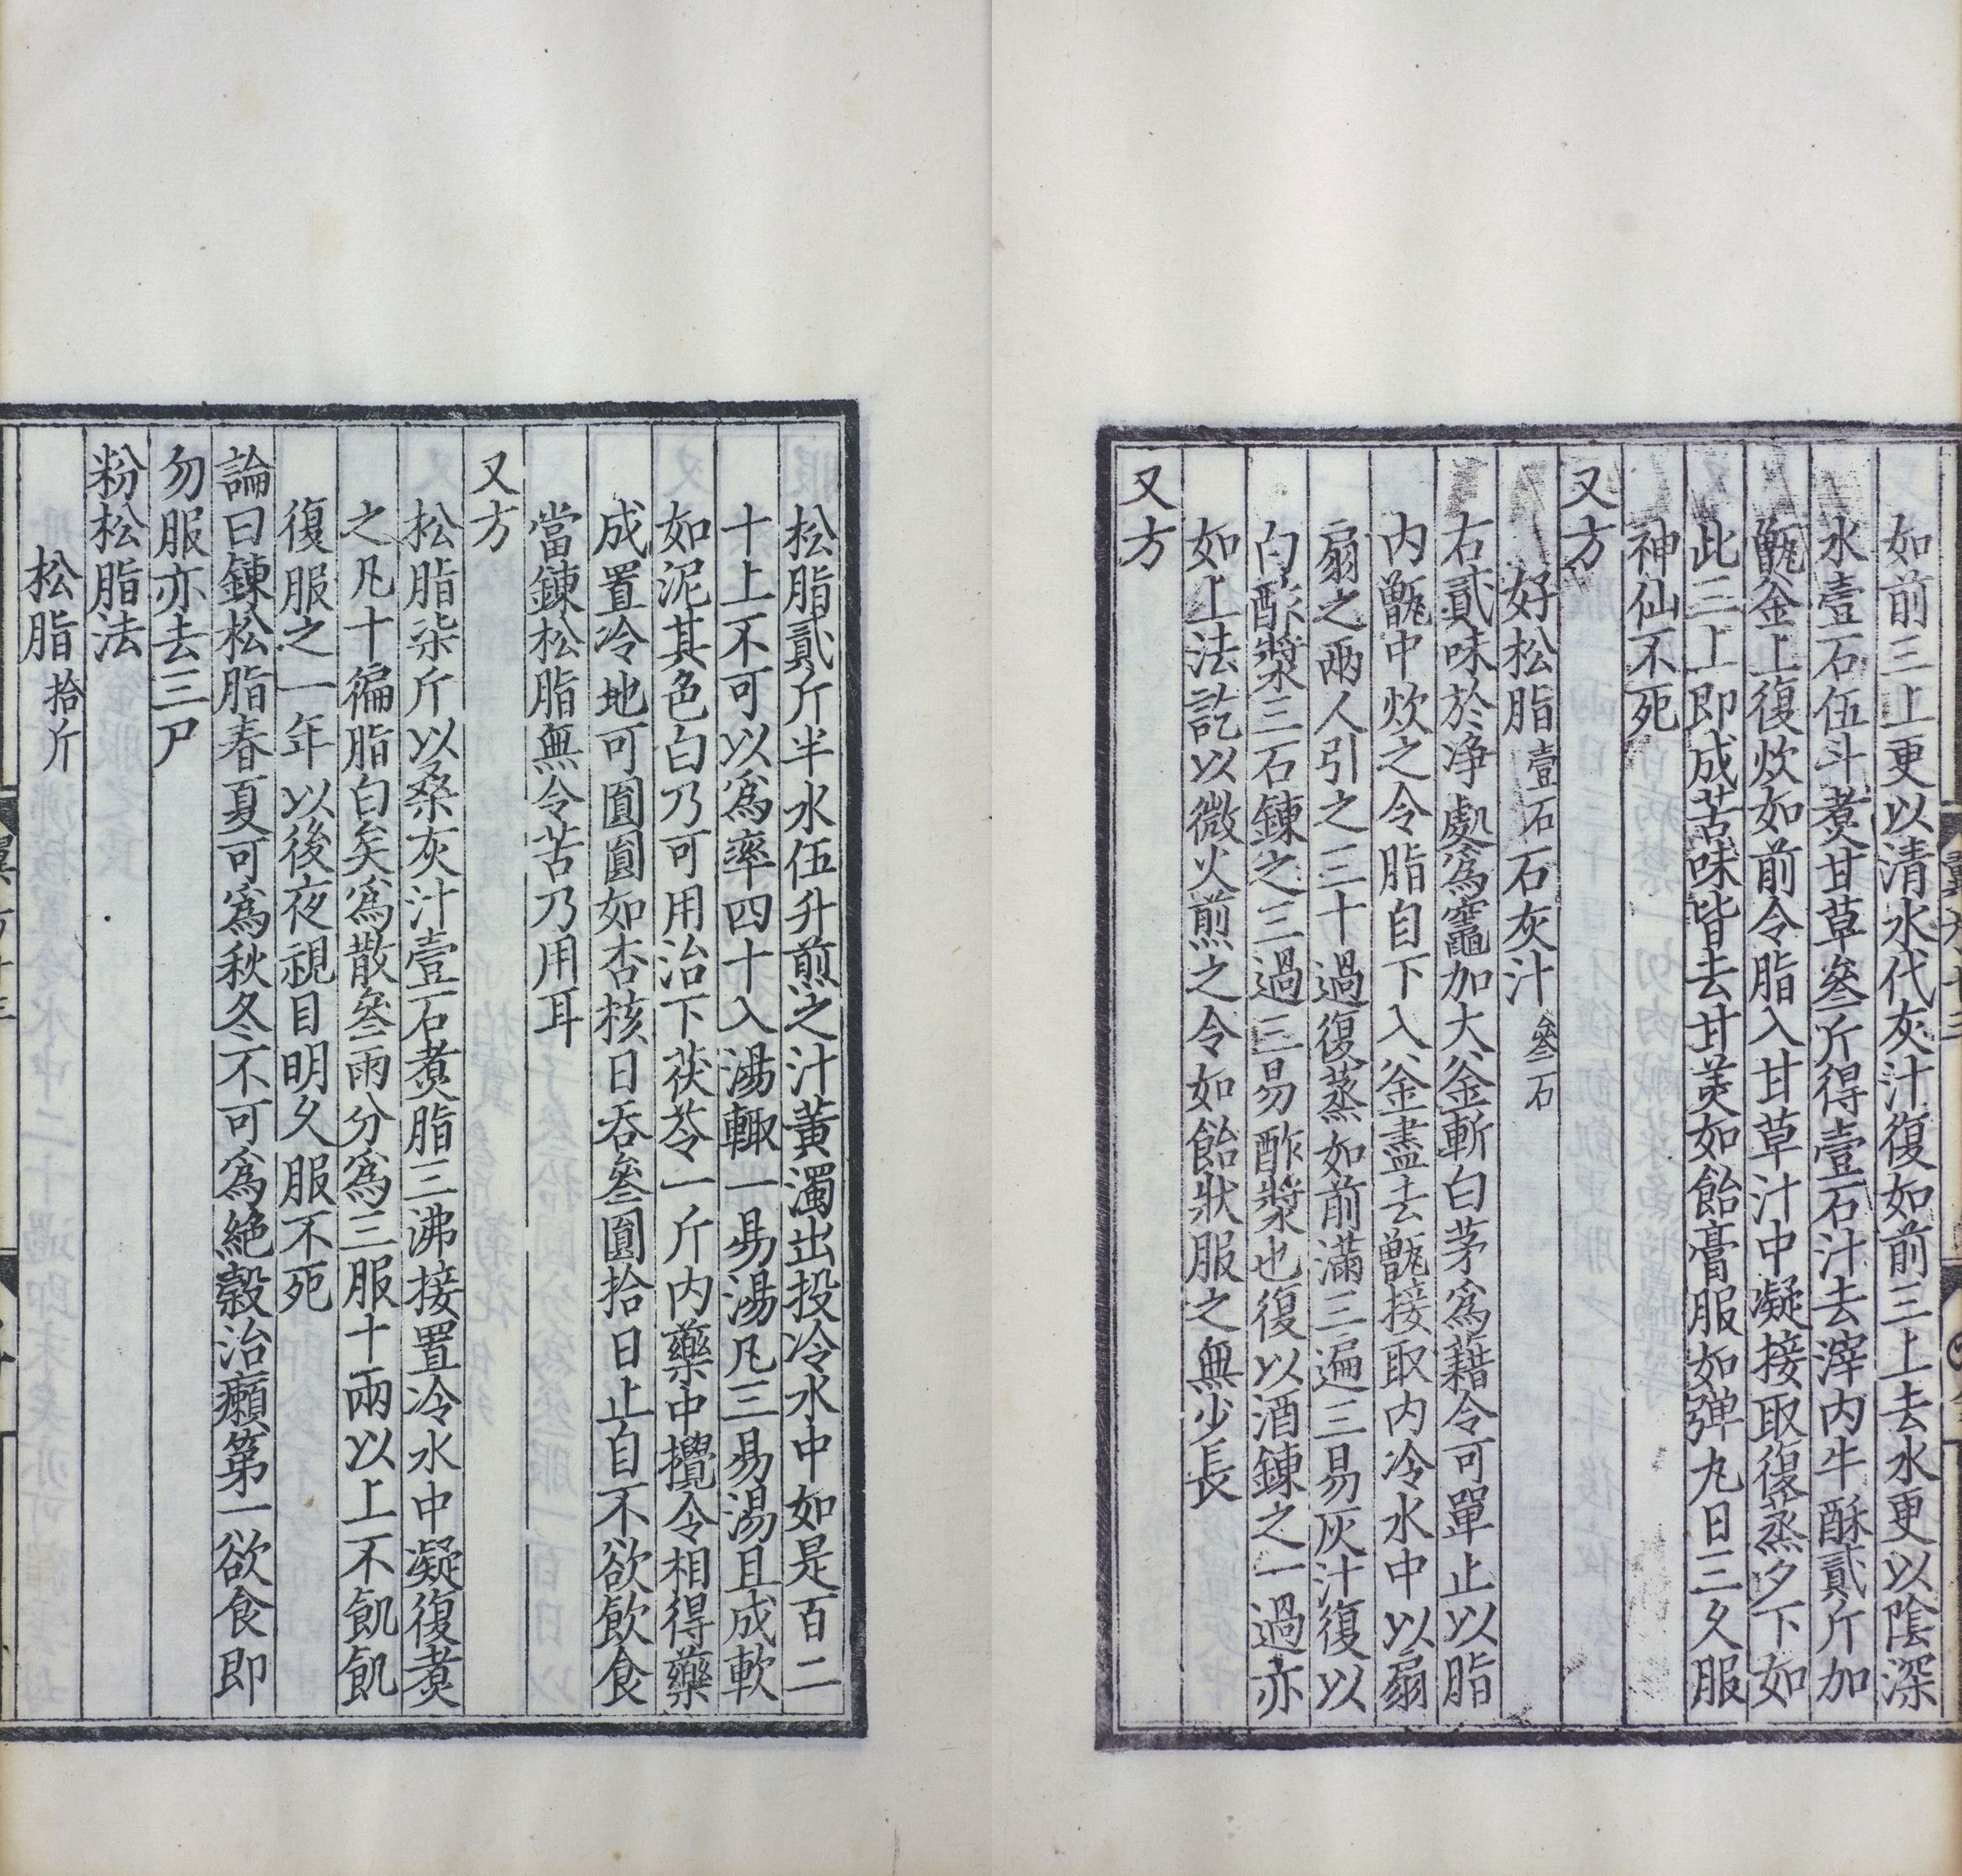 如前三上更以清水代灰汁復如前三上去水更以陰深
水壹石伍斗煑甘草叁斤得壹石汁去滓内牛酥貳斤加
甑釜上復炊如前令脂入甘草汁中凝接取復蒸夕下如
此三上即成苦味皆去甘美如飴膏服如弹丸日三久服
神仙不死
又方
好松脂壹石石灰汁叁石
右貳味於净處為竈加大釜斬白茅為藉令可單止以脂
内甑中炊之令脂自下入釜盡去甑接取内冷水中以扇
扇之兩人引之三十過復蒸如前滿三遍三易灰汁復以
白酢漿三石鍊之三過三易酢漿也復以酒鍊之一過亦
如上法訖以微火煎之令如飴狀服之無少長
又方
松脂貳斤半水伍升煎之汁黄濁出投冷水中如是百二
十上不可以為率四十入湯輙一易湯凡三易湯且成軟
如泥其色白乃可用治下茯苓一斤内藥中攪令相得藥
成置冷地可圓圓如杏核日吞叁圓拾日止自不欲飲食
當鍊松脂無令苦乃用耳
又方
松脂柒斤以桑灰汁壹石煑脂三沸接置冷水中凝復煑
之凡十徧脂白矣為散叁兩分為三服十兩以上不飢飢
復服之一年以後夜視目明久服不死
論曰鍊松脂春夏可為秋冬不可為絶榖治癩第一欲食即
勿服亦去三尸
粉松脂法
松脂拾斤